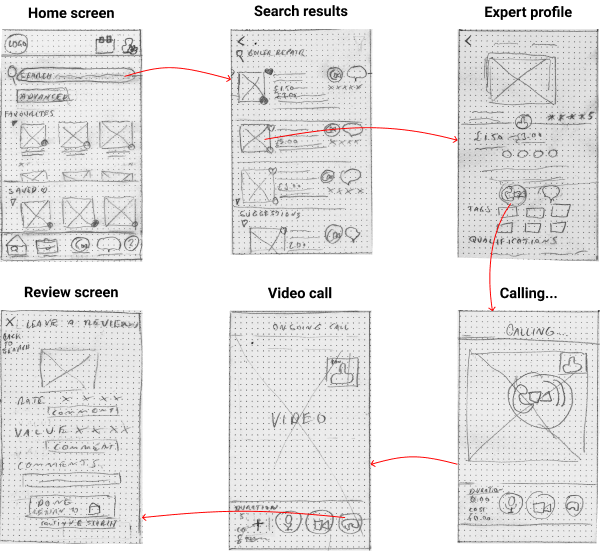 Home screen
LOGO
SEARCH
ADVANCED
FAVOURITES
SAVED
Search results
BOILER REPAIR
£1.50
£3.00
SUGGESTIONS
Expert profile
£1.50 - £3.00
TAGS
QUALIFICATIONS
Review screen
X LEAVE A REVIEW
BACK
TO
RATE X X X X
COMMENT
VALUE X X X X
COMMENT
COMMENTS
DONE
Video call
ONGOING CALL
VIDEO
DURATION
Calling...
CALLING...
DURATION
0.00
COST
£0.00